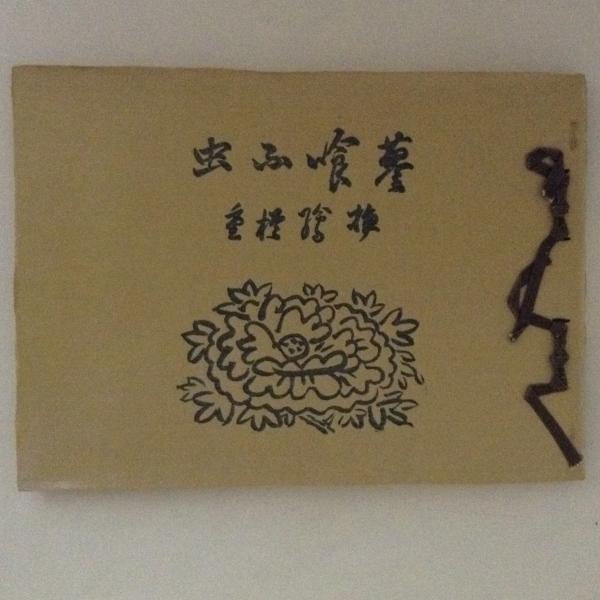 蓼喰ふ虫
挿繪楢重